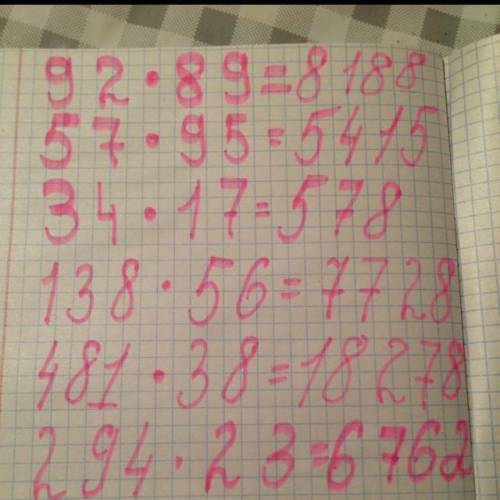 92·89=8188
57·95=5415
34·17=578
138·56=7728
481·38=18278
294·23=6762